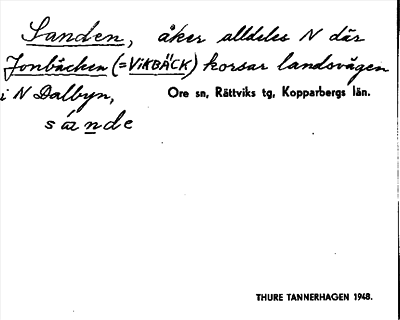 Sanden, åker alldeles N där
Jonbäcken (= VIKBÄCK) korsar landsvägen
i N Dalbyn, Ore sn, Rättviks tg, Kopparbergs län.
sánde
THURE TANNERHAGEN 1948.